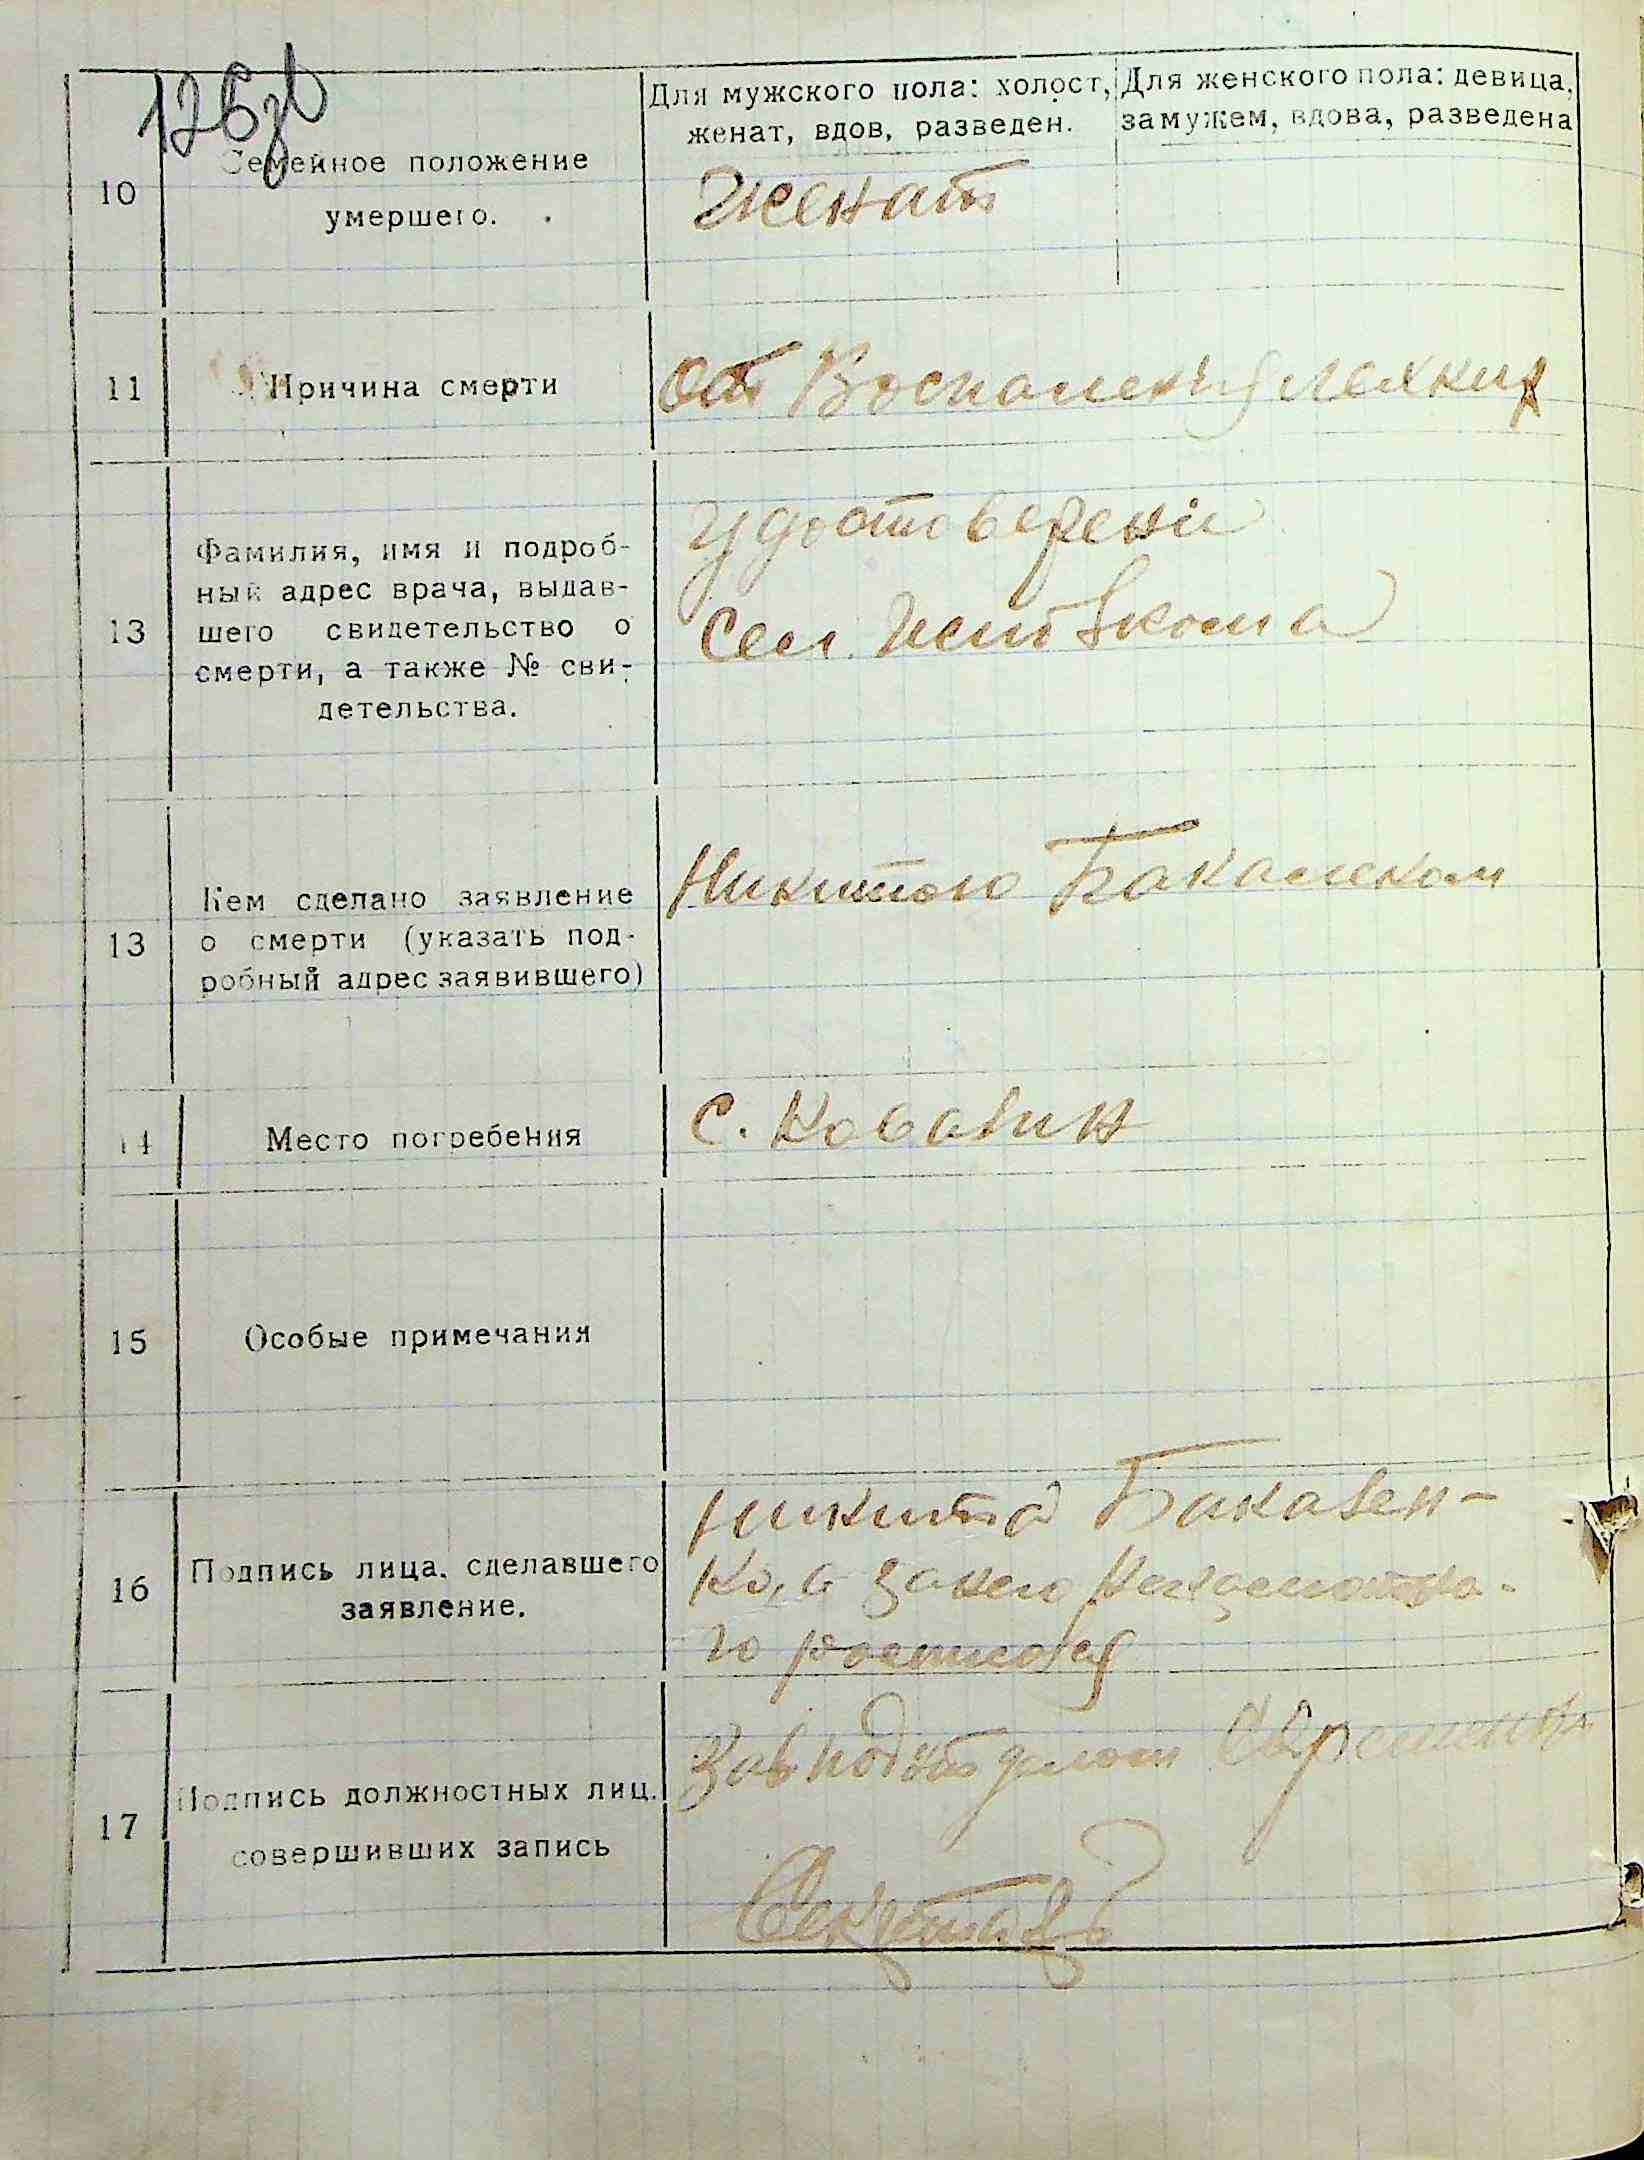 126зв
10
Семейное положение
умершего.
Для мужского пола: холост,
женат, вдов, разведен.
Для женского пола: девица,
замужем, вдова, разведена
Женат
11
Причина смерти
От Воспаления лехких
13
Фамилия, имя и подроб-
ный адрес врача, выдав-
шего свидетельство о
смерти, а также № сви-
детельства.
Удостоверени
Сел. Исполкома
13
Кем сделано заявление
о смерти (указать под-
робный адрес заявившего)
Никитою
14
Место погребения
С.
15
Особые примечания
16
Подпись лица, сделавшего
заявление.
Никита
ко, а за него неграмотна-
го
17
Подпись должностных лиц.
совершивших запись
Зав подотделом
Секретарь